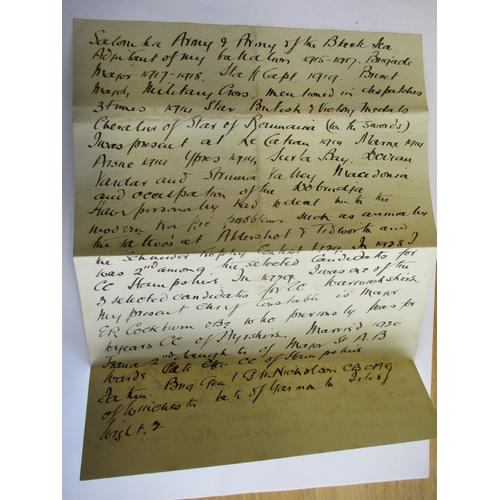 Salonika Army & Army of the Black Sea
Adjutant of my battalion 1915-1917. Brigade
Major 1917-1918. Staff Capt 1919. Brevet
Major, Military Cross, mentioned in despatches
3 times, 1914 Star British & Victory Medals
Chevalier of Star of Roumania (with Swords)
I was present at Le Cateau 1914 Marne 1914
Aisne 1914 Ypres 1914, Suvla Bay, Doiran
Vardar and Struma Valley Macedonia
and occupation of the Dobrudja
Have personally had to deal with the
modern traffic problems such as annually
the tattoos at Aldershot & Tidworth and
the Schneider Trophy Contest 1929. In 1928 I
was 2nd among the selected candidates for
CC Hampshire. In 1929 I was one of the
3 selected candidates for CC Warwickshire
My present Chief Constable is Major
ER Cockburn OBE who previously was for
10 years CC of Ayrshire. Married 1920
2nd daughter of Major St A B
Warde late CC of Hampshire
Father Brig Genl G H Nicholson CB CMG
of Winchester late of Yarmouth Isle of
Wight.